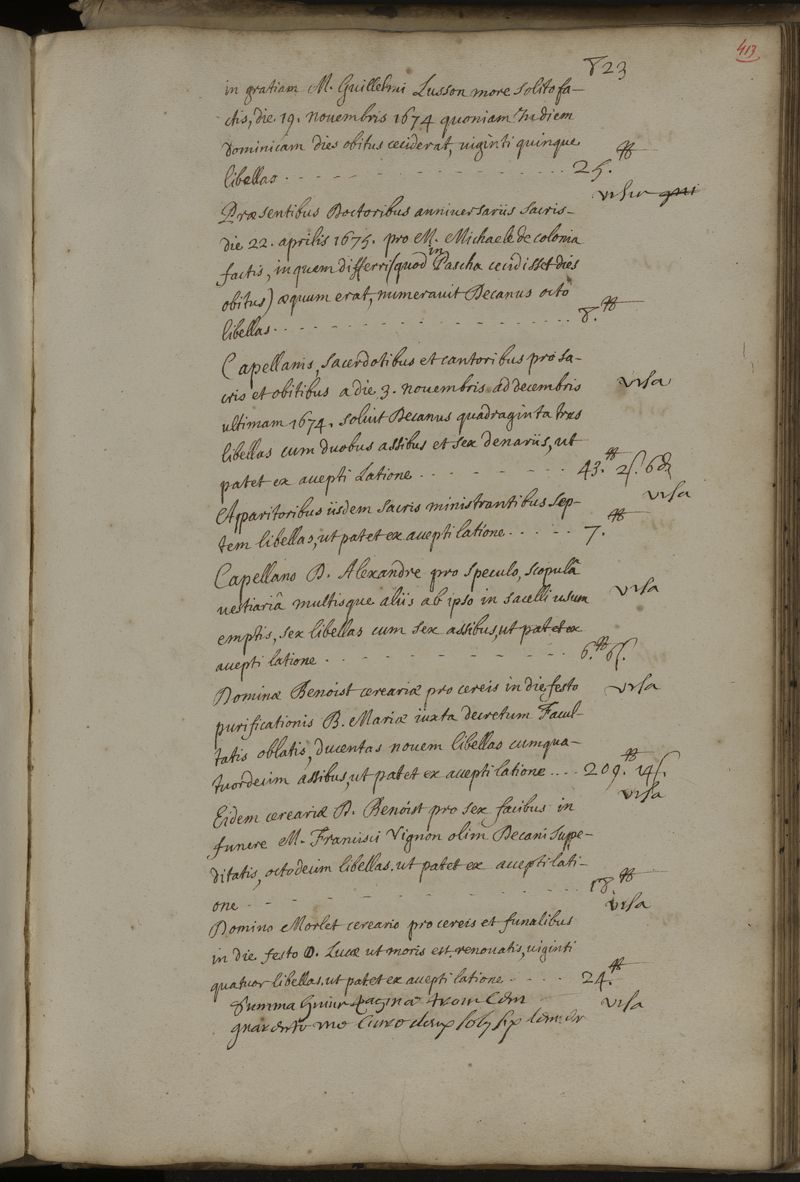 413
823
in gratiam M. Guillelmi Lusson more solito fa-
ctis, die 19. novembris 1674 quoniam In diem
Dominicam dies obitus ceciderat, viginti quinque
libellas . . . . 25.
visa
Præsentibus Doctoribus anniversariis sacris
die 22. aprilis 1675. pro M. Michaele de colonia
factis, in quem differri (quod in Pascha cecidisset dies
obitus) æquum erat, numeravit Decanus octo
libellas . . . . 8.
Capellanis, sacerdotibus et cantoribus pro sa-
cris et obitibus a die 3. novembris ad decembris
visa
ultimam 1674. solvit Decanus quadraginta tres
libellas cum duobus assibus et sex denariis, ut
patet ex accepti latione . . . . 43. 2s. 6d
Apparitoribus iisdem sacris ministrantibus sep-
visa
tem libellas, ut patet ex accepti latione . . . . 7.
Capellano D. Alexandre pro speculo, scopulâ
vestiariâ multisque aliis ab ipso in sacelli usum
visa
emptis, sex libellas cum sex assibus, ut patet ex
accepti latione . . . . 6. 6s.
Dominæ Benoist cerariæ pro cereis in die festo
visa
purificationis B. Mariæ iuxta decretum Facul-
tatis oblatis, ducentas novem libellas cum qua-
tuordecim assibus, ut patet ex accepti latione . . . . 209. 14s.
visa
Eidem cerariæ D. Benoist pro sex facibus in
funere M. Francisci Vignon olim Decani suppe-
ditatis, octodecim libellas. ut patet ex accepti lati-
one . . . . 18
visa
Domino Morlet cerario pro cereis et funalibus
in die festo D. Lucæ ut moris est renovatis, viginti
quatuor libellas. ut patet ex accepti latione . . . . 24.
visa
Summa huius paginæ